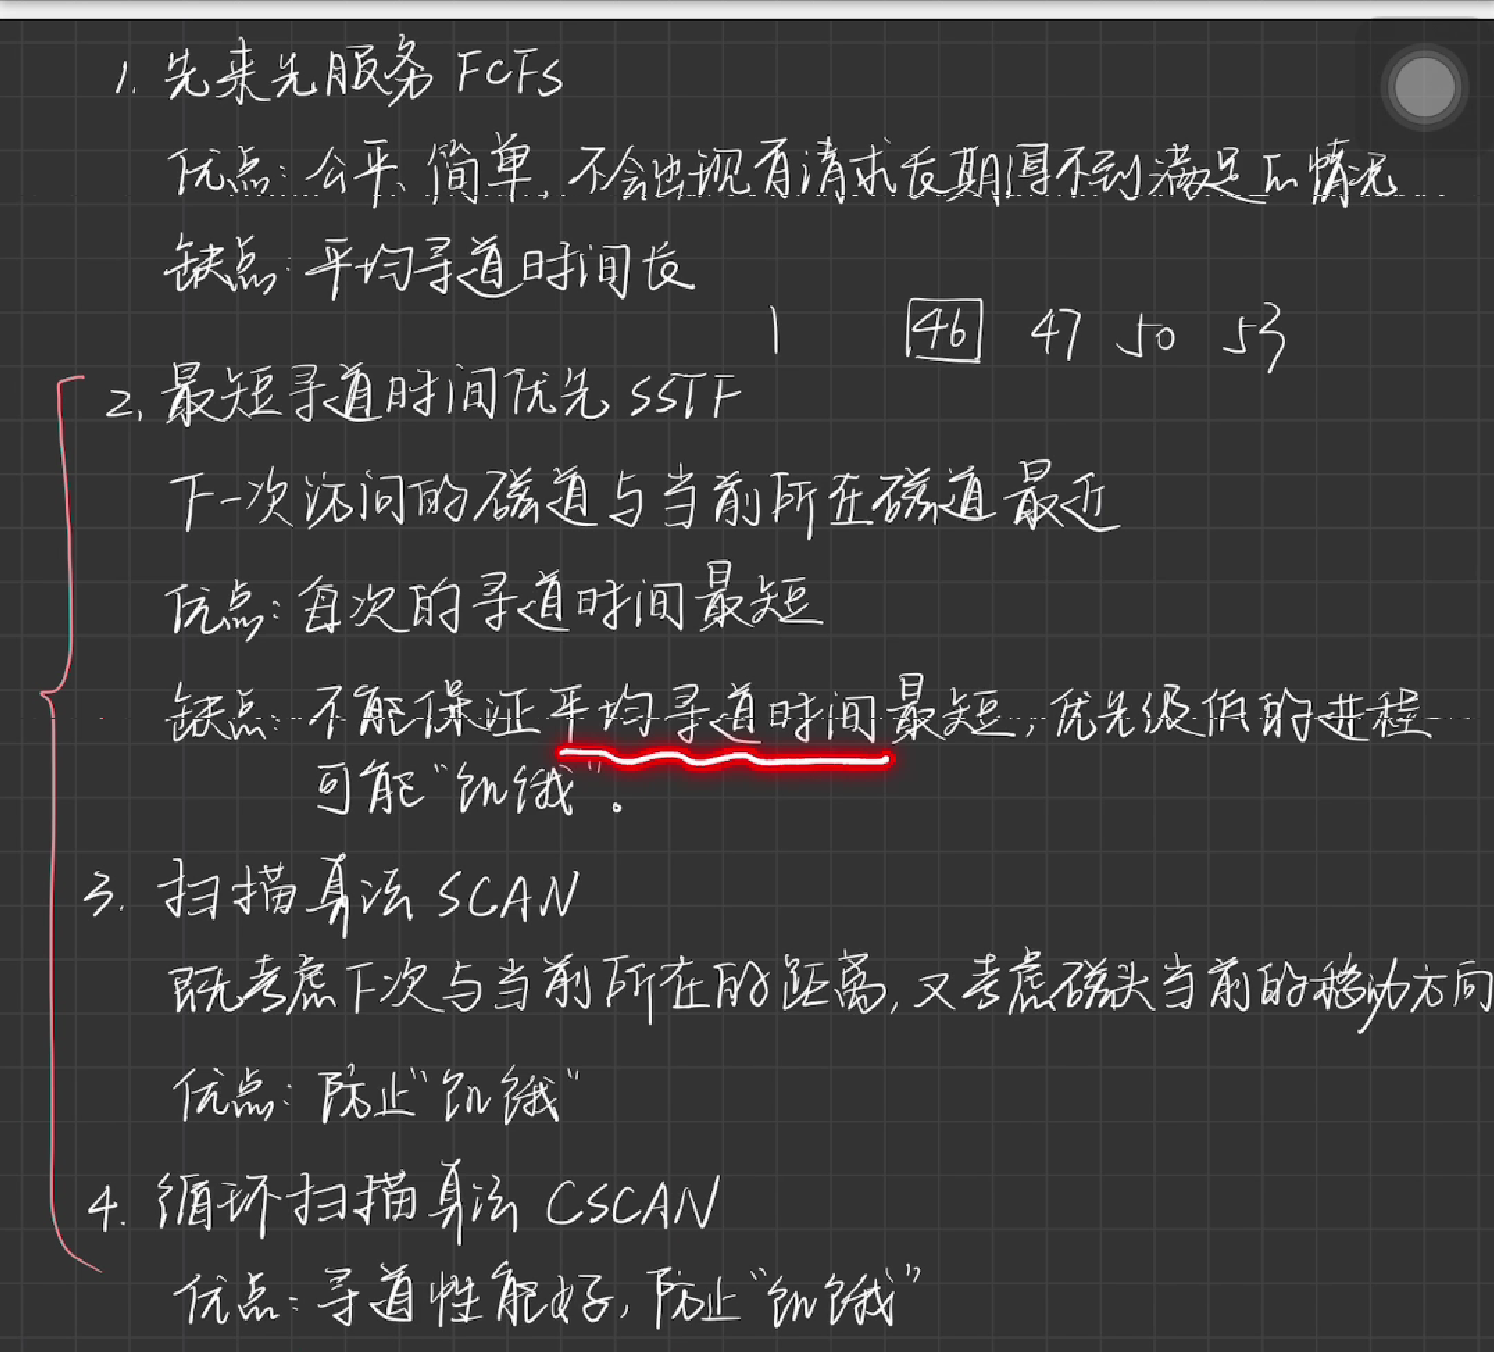 1. 先来先服务 FCFS
优点: 公平、简单, 不会出现有请求长期得不到满足的情况
缺点: 平均寻道时间长
1 46 47 50 53
2. 最短寻道时间优先 SSTF
下一次访问的磁道与当前所在磁道最近
优点: 每次的寻道时间最短
缺点: 不能保证平均寻道时间最短, 优先级低的进程
可能“饥饿”。
3. 扫描算法 SCAN
既考虑下次与当前所在的距离, 又考虑磁头当前的移动方向
优点: 防止“饥饿”
4. 循环扫描算法 CSCAN
优点: 寻道性能好, 防止“饥饿”